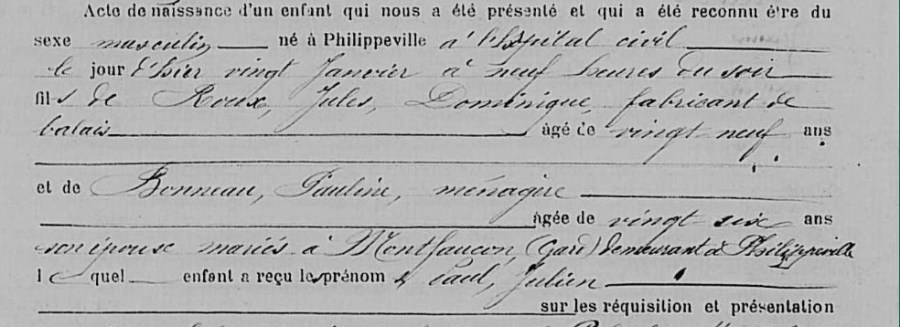 Acte de naissance d'un enfant qui nous a été présenté et qui a été reconnu être du
sexe masculin né à Philippeville à l'hôpital civil
le jour d'hier vingt Janvier à neuf heures du soir
fils de Roux, Jules, Dominique, fabricant de
balais âgé de vingt neuf ans
et de Bonneau, Pauline, ménagère
âgée de vingt six ans
son épouse mariés à Montfaucon (Gard) demeurant à Philippeville
lequel enfant a reçu les prénoms Paul, Julien
sur les réquisition et présentation